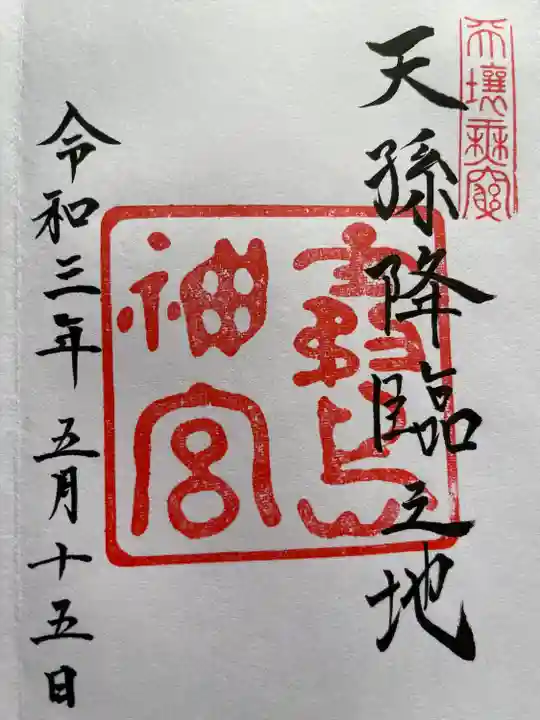 天壌無窮
天孫降臨之地
霧島
神宮
令和三年五月十五日